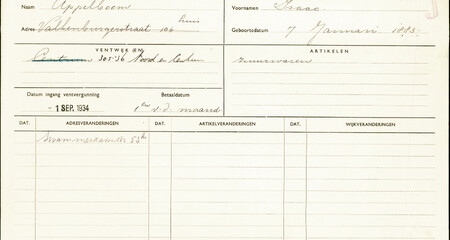 Appelboom Voornamen Isaac
huis
Adres Valkenburgerstraat 106 Geboortedatum 7 Januari 1893.
VENTWIJK (EN) ARTIKELEN
Centrum 30-5-'36 Noord en Centrum zuurwaren
Datum ingang ventvergunning Betaaldatum
-1 SEP. 1934 1ste v.d. maand
DAT. ADRESVERANDERINGEN DAT. ARTIKELVERANDERINGEN DAT. WIJKVERANDERINGEN